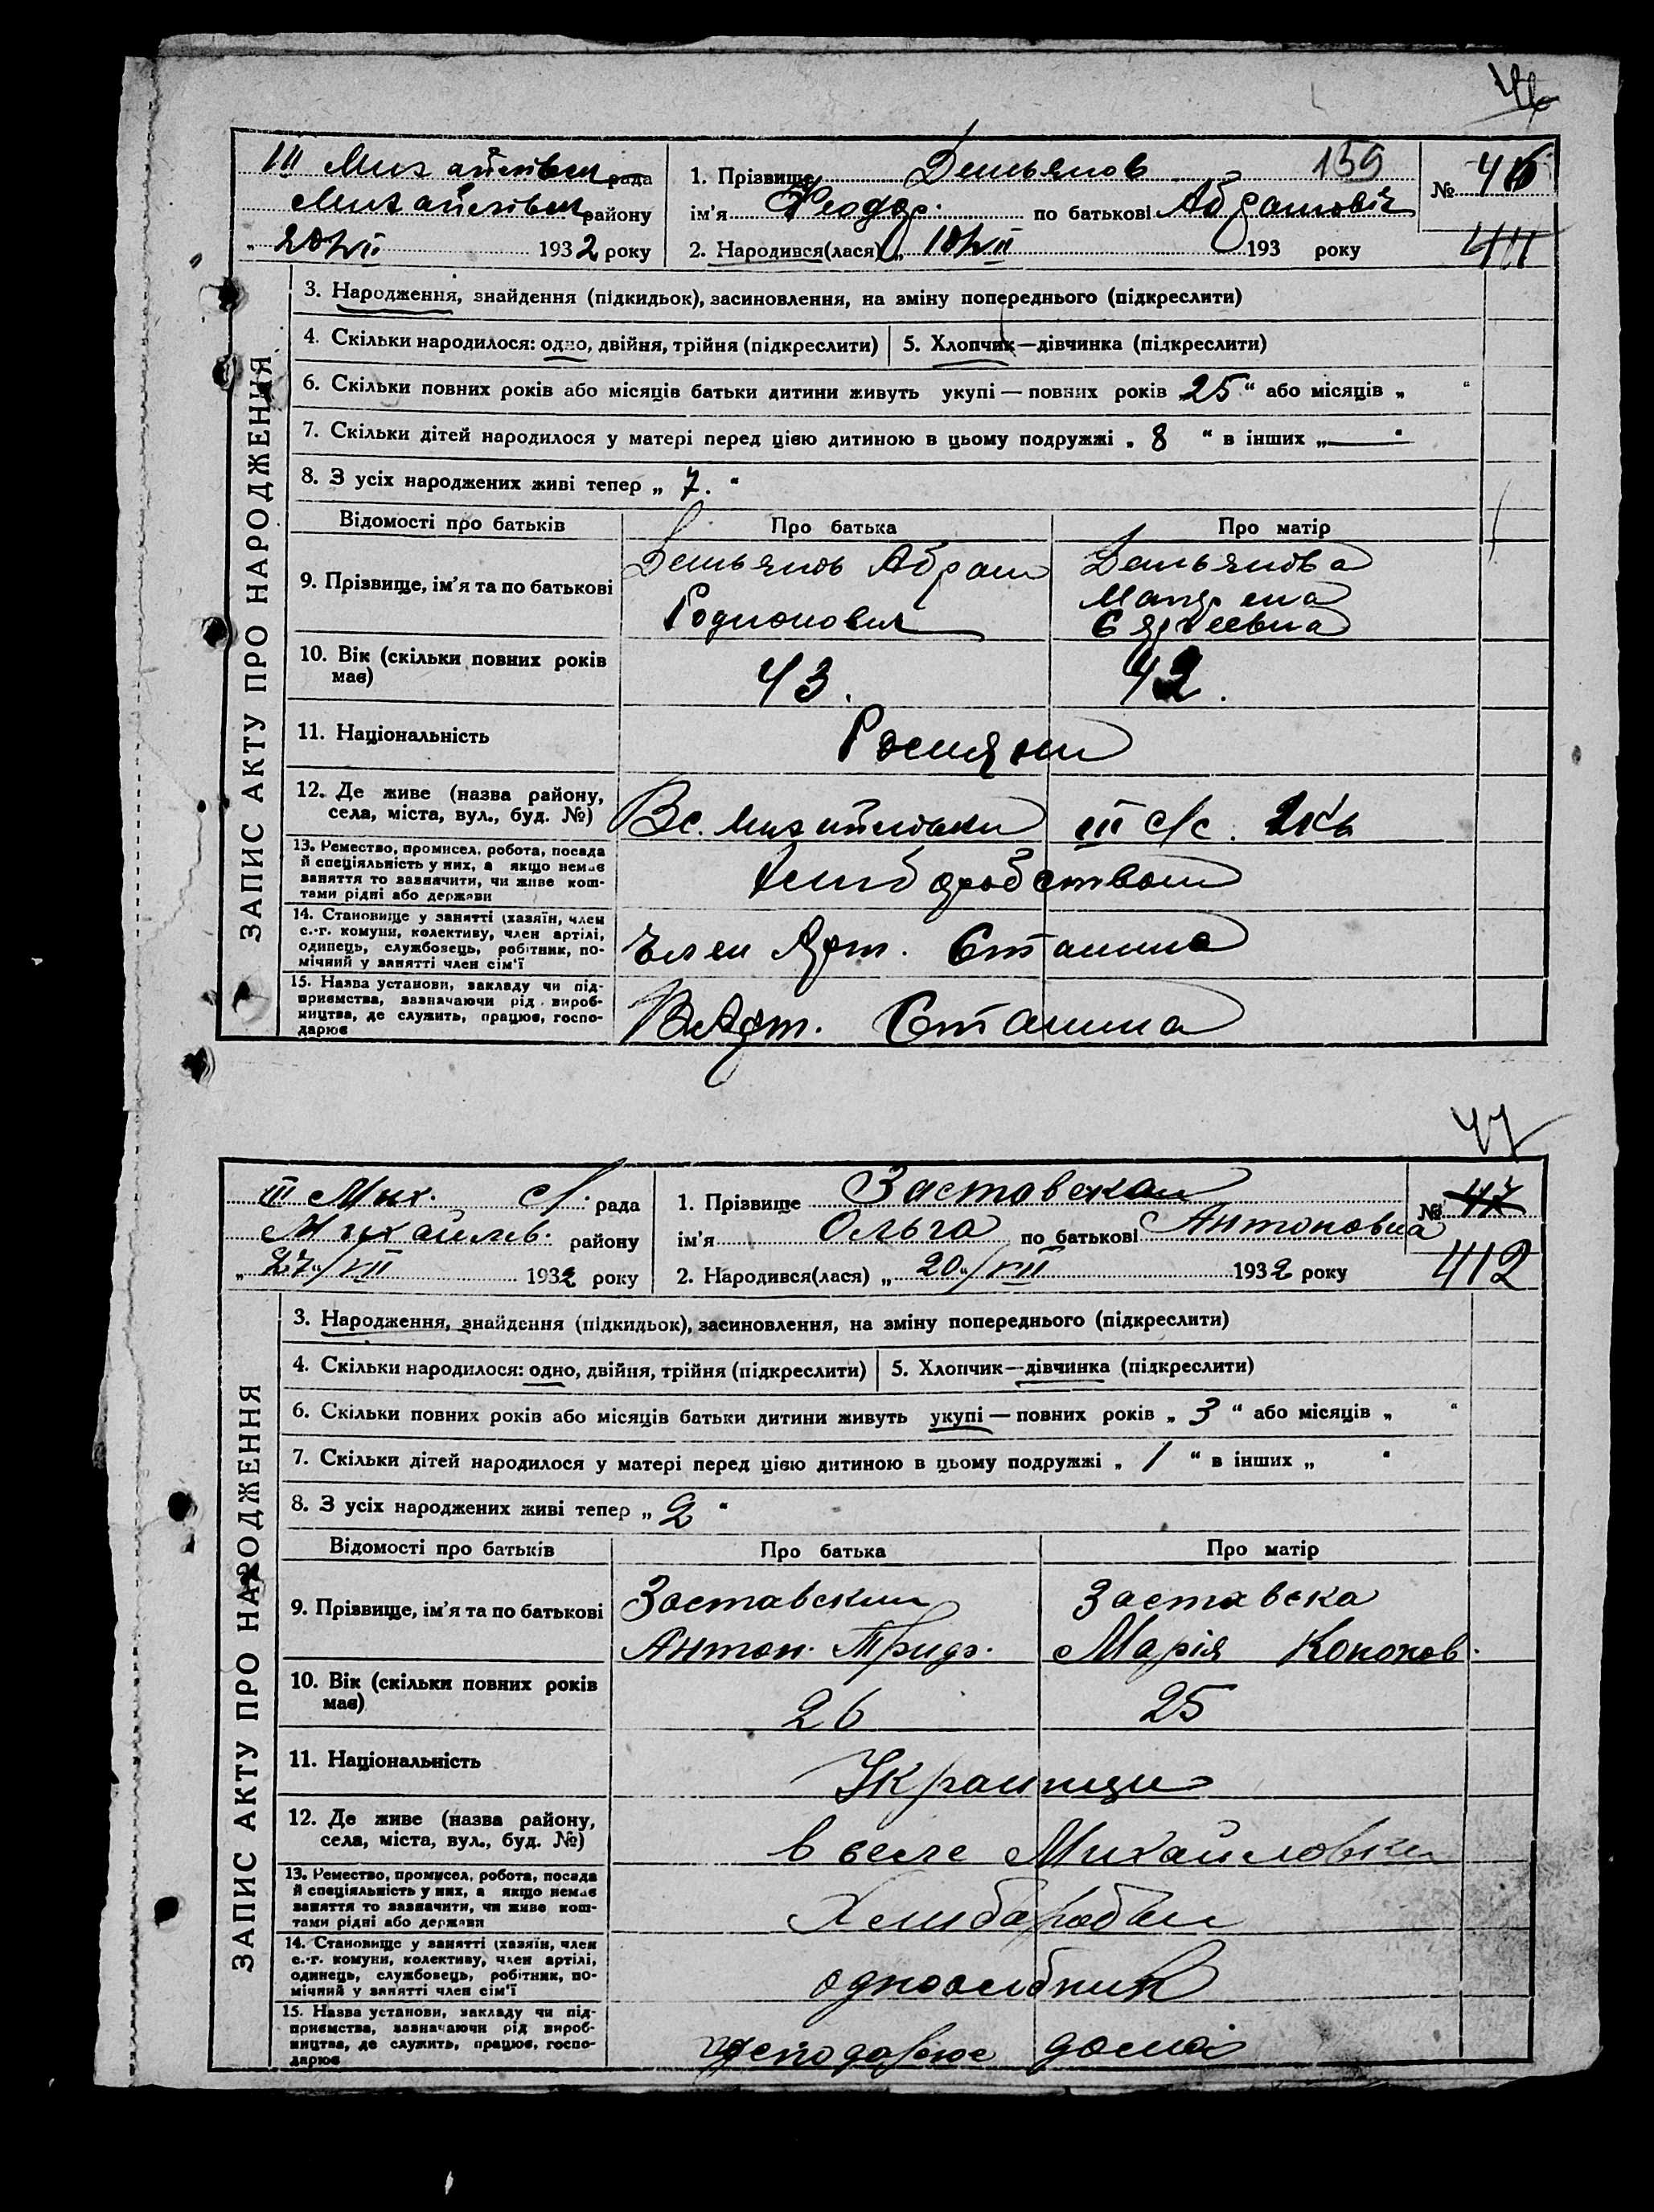 46
III Михайлівська рада
1. Прізвище Демьянов 159
№ 46
Михайлівськ району
ім'я Феодор по батькові Абрамовіч
20/VII 1932 року
2. Народився(лася) „ 10/VII 193 року
411
ЗАПИС АКТУ ПРО НАРОДЖЕННЯ
3. Народження, знайдення (підкидьок), засиновлення, на зміну попереднього (підкреслити)
4. Скільки народилося: одно, двійня, трійня (підкреслити) 5. Хлопчик—дівчинка (підкреслити)
6. Скільки повних років або місяців батьки дитини живуть укупі — повних років „ 25 “ або місяців „ “
7. Скільки дітей народилося у матері перед цією дитиною в цьому подружжі „ 8 “ в інших „ — “
8. З усіх народжених живі тепер „ 7. “
Відомості про батьків Про батька Про матір
9. Прізвище, ім'я та по батькові
Демьянов Абрам Родионович
Демьянова Матрена Сергеевна
10. Вік (скільки повних років має)
43. 42.
11. Національність
Росияни
12. Де живе (назва району, села, міста, вул., буд. №)
В с. Михайловки III с/с.
13. Ремество, промисел, робота, посада й спеціяльність у них, а якщо немає заняття то зазначити, чи живе коштами рідні або держави
Хлиборобством
14. Становище у занятті (хазяїн, член с.-г. комуни, колективу, член артілі, одинець, службовець, робітник, помічний у занятті член сім'ї
Член Арт. Сталина
15. Назва установи, закладу чи підприємства, зазначаючи рід виробництва, де служить, працює, господарює
В Арт. Сталина
47
III Мих. с/. рада
1. Прізвище Заставская
№ 47
Михайлів. району
ім'я Ольга по батькові Антоновна
„ 27“/VII 1932 року
2. Народився(лася) „ 20“/VII 1932 року
412
ЗАПИС АКТУ ПРО НАРОДЖЕННЯ
3. Народження, знайдення (підкидьок), засиновлення, на зміну попереднього (підкреслити)
4. Скільки народилося: одно, двійня, трійня (підкреслити) 5. Хлопчик—дівчинка (підкреслити)
6. Скільки повних років або місяців батьки дитини живуть укупі — повних років „ 3 “ або місяців „ “
7. Скільки дітей народилося у матері перед цією дитиною в цьому подружжі „ 1 “ в інших „ “
8. З усіх народжених живі тепер „ 2 “
Відомості про батьків Про батька Про матір
9. Прізвище, ім'я та по батькові
Заставский Антон.
Заставска Марія Кононов.
10. Вік (скільки повних років має)
26 25
11. Національність
Украинци
12. Де живе (назва району, села, міста, вул., буд. №)
в селе Михайловки
13. Ремество, промисел, робота, посада й спеціяльність у них, а якщо немає заняття то зазначити, чи живе коштами рідні або держави
14. Становище у занятті (хазяїн, член с.-г. комуни, колективу, член артілі, одинець, службовець, робітник, помічний у занятті член сім'ї
одноосибник
15. Назва установи, закладу чи підприємства, зазначаючи рід виробництва, де служить, працює, господарює
господарює дома